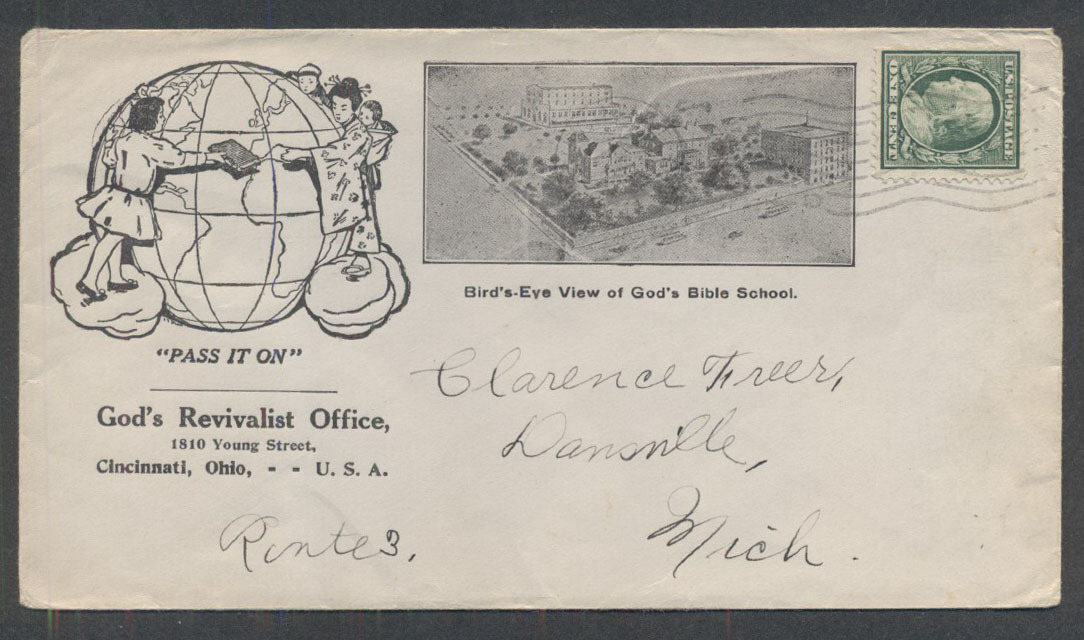 U.S. POSTAGE
ONE CENT
Bird's-Eye View of God's Bible School.
"PASS IT ON"
God's Revivalist Office,
1810 Young Street,
Cincinnati, Ohio, - - U. S. A.
Clarence Freer,
Dansville,
Mich.
Route 3.